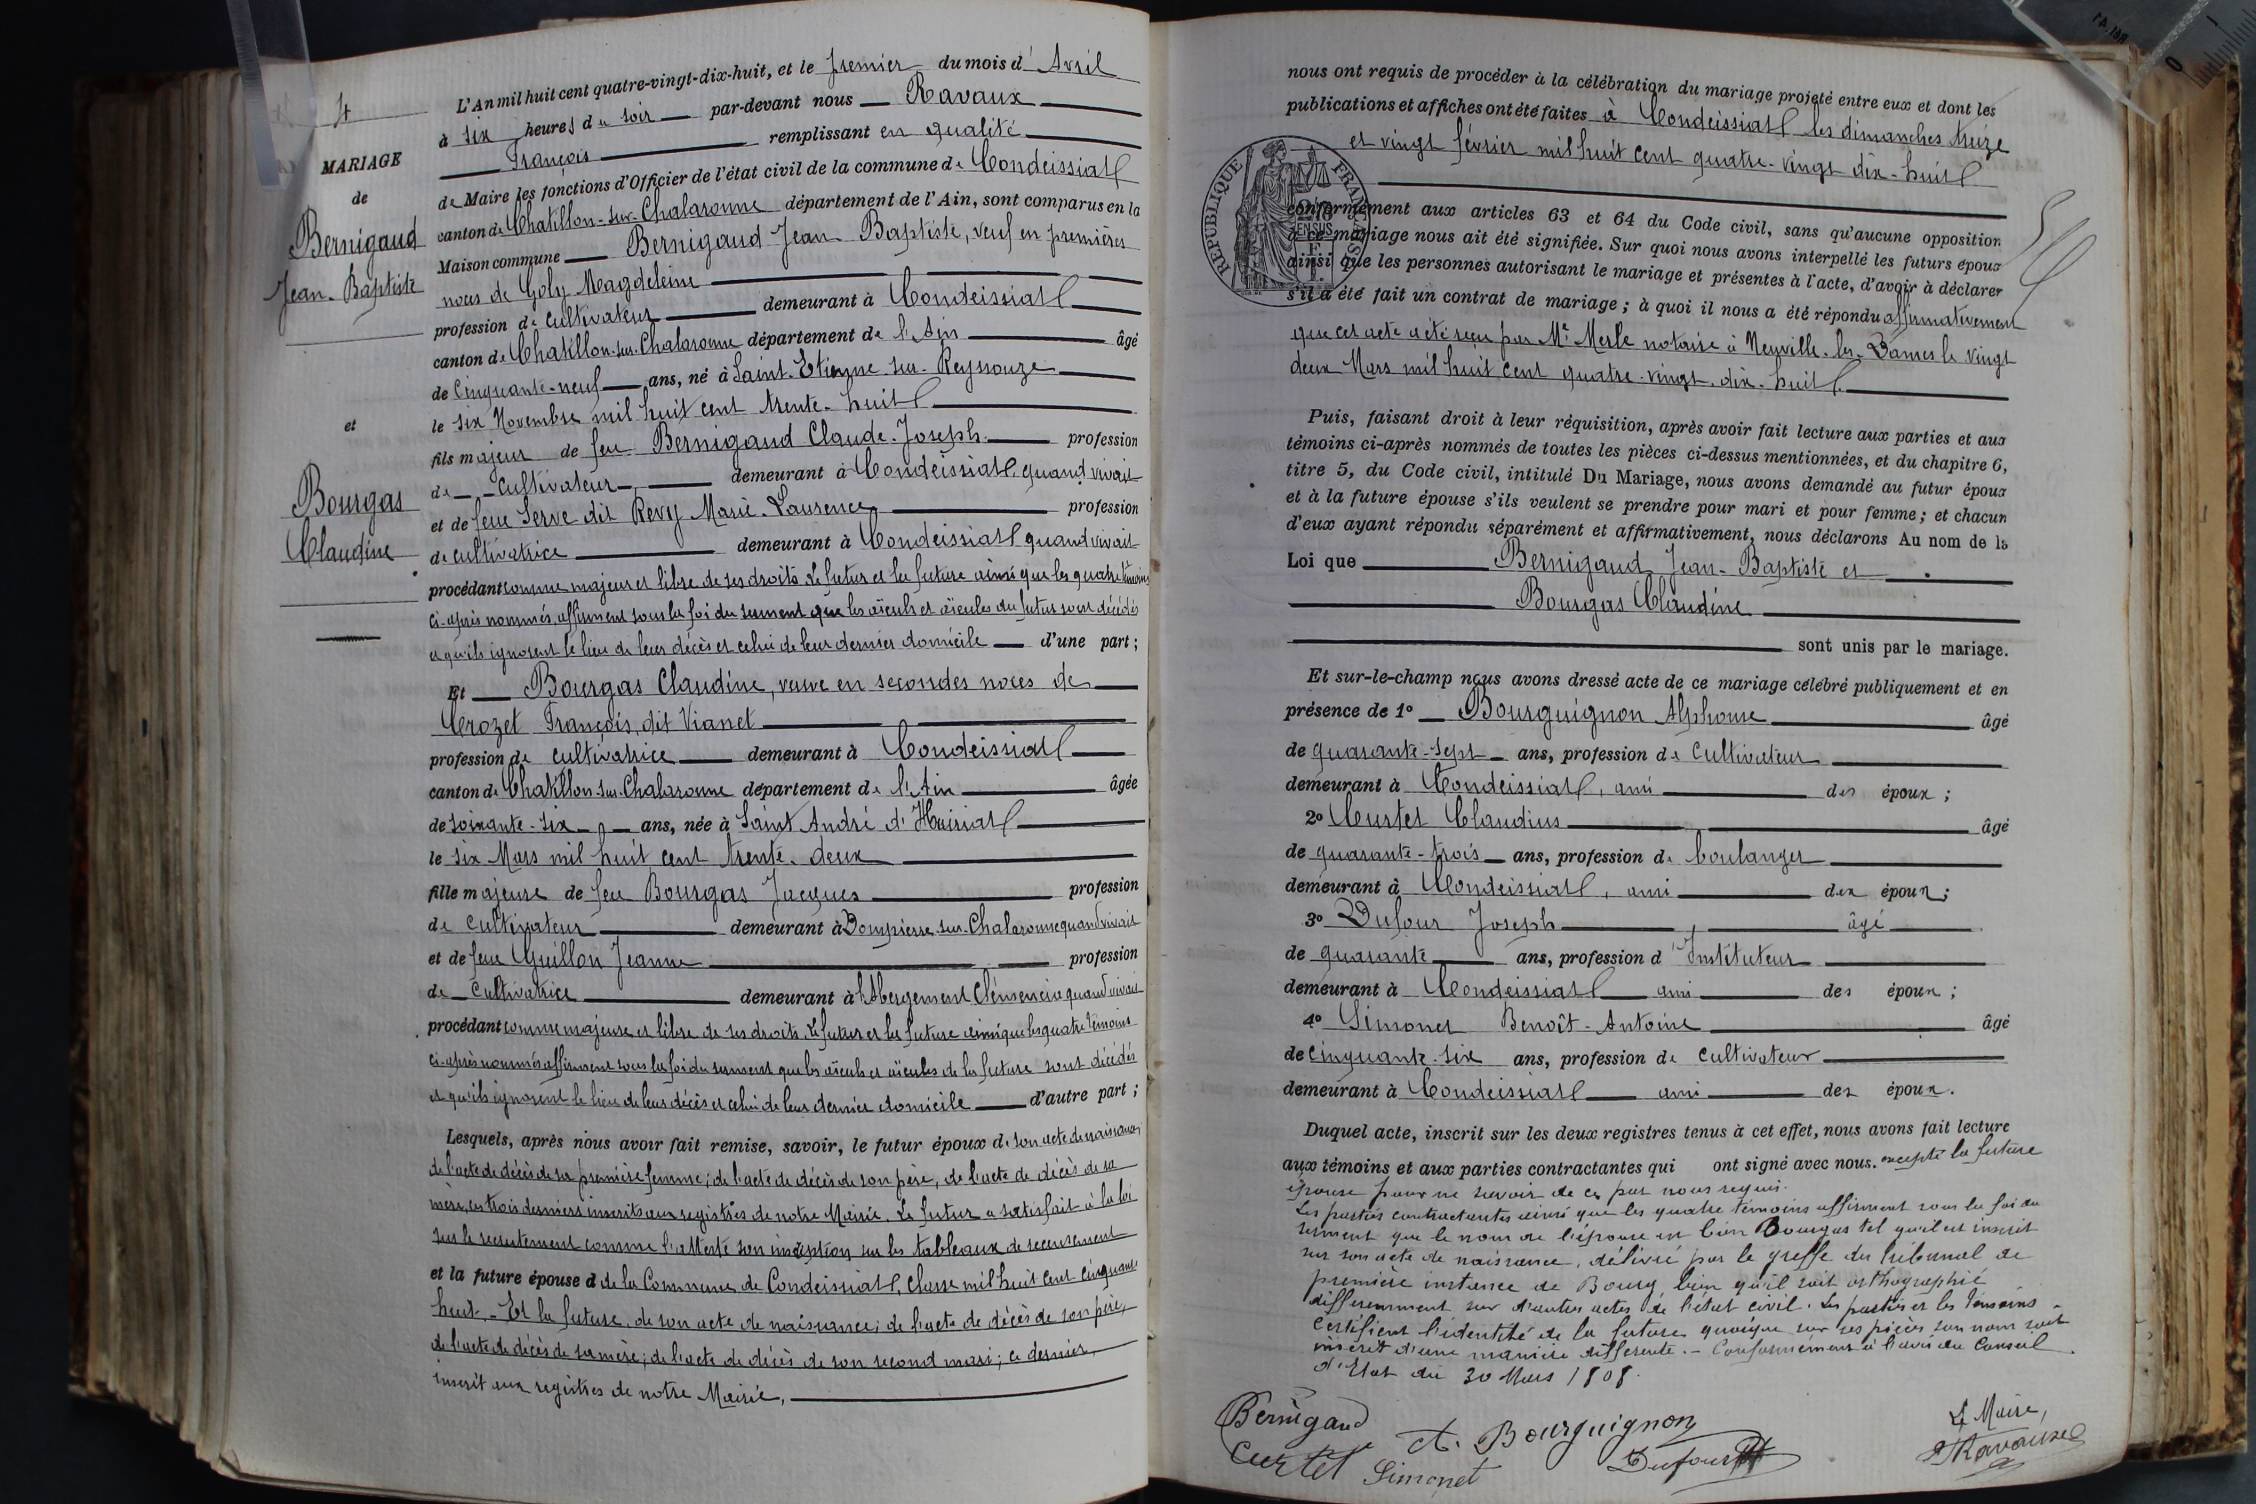 4
MARIAGE
de
Bernigaud
Jean-Baptiste
et
Bourgas
Claudine
L'An mil huit cent quatre-vingt-dix-huit, et le premier du mois d' Avril
à six heures du soir par-devant nous Ravaux
François remplissant en qualité
de Maire les fonctions d'Officier de l'état civil de la commune de Condeissiat
canton de Chatillon-sur-Chalaronne département de l'Ain, sont comparus en la
Maison commune Bernigaud Jean Baptiste, veuf en premières
noces de Goly Magdeleine
profession de cultivateur demeurant à Condeissiat
canton de Chatillon-sur-Chalaronne département de l'Ain âgé
de Cinquante-neuf ans, né à Saint-Etienne-sur-Reyssouze
le six Novembre mil huit cent trente-huit
fils majeur de feu Bernigaud Claude-Joseph profession
de cultivateur demeurant à Condeissiat, quand vivait
et de feue Serve dit Revy Marie-Laurence profession
de cultivatrice demeurant à Condeissiat quand vivait
procédant comme majeur et libre de ses droits. Le futur et la future ainsi que les quatre témoins
ci-après nommés, affirment sous la foi du serment que les aïeuls et aïeules du futur sont décédés
et qu'ils ignorent le lieu de leurs décès et celui de leur dernier domicile d'une part ;
Et Bourgas Claudine, veuve en secondes noces de
Crozet François, dit Vianet
profession de cultivatrice demeurant à Condeissiat
canton de Chatillon-sur-Chalaronne département de l'Ain âgée
de soixante-six ans, née à Saint André d'Huiriat
le six Mars mil huit cent trente-deux
fille majeure de feu Bourgas Jacques profession
de cultivateur demeurant à Dompierre-sur-Chalaronne quand vivait
et de feue Guillon Jeanne profession
de cultivatrice demeurant à l'Abergement Clémenciat quand vivait
procédant comme majeure et libre de ses droits. Le futur et la future ainsi que les quatre témoins
ci-après nommés affirment sous la foi du serment que les aïeuls et aïeules de la future sont décédés
et qu'ils ignorent le lieu de leurs décès et celui de leur dernier domicile d'autre part ;
Lesquels, après nous avoir fait remise, savoir, le futur époux de son acte de naissance,
de l'acte de décès de sa première femme ; de l'acte de décès de son père, de l'acte de décès de sa
mère, ces trois derniers inscrits aux registres de notre Mairie. Le futur a satisfait à la loi
sur le recrutement comme l'atteste son inscription sur les tableaux de recensement
et la future épouse d de la Commune de Condeissiat, classe mil huit cent cinquante
huit. - Et la future, de son acte de naissance ; de l'acte de décès de son père,
de l'acte de décès de sa mère ; de l'acte de décès de son second mari ; ce dernier,
inscrit aux registres de notre Mairie,
nous ont requis de procéder à la célébration du mariage projeté entre eux et dont les
publications et affiches ont été faites à Condeissiat les dimanches treize
et vingt février mil huit cent quatre-vingt dix-huit
RÉPUBLIQUE FRANÇAISE
conformément aux articles 63 et 64 du Code civil, sans qu'aucune opposition
à ce mariage nous ait été signifiée. Sur quoi nous avons interpellé les futurs époux
ainsi que les personnes autorisant le mariage et présentes à l'acte, d'avoir à déclarer
s'il a été fait un contrat de mariage ; à quoi il nous a été répondu affirmativement
que cet acte a été reçu par Me Merle notaire à Neuville-les-Dames le vingt
deux Mars mil huit cent quatre-vingt-dix-huit.
Puis, faisant droit à leur réquisition, après avoir fait lecture aux parties et aux
témoins ci-après nommés de toutes les pièces ci-dessus mentionnées, et du chapitre 6,
titre 5, du Code civil, intitulé Du Mariage, nous avons demandé au futur époux
et à la future épouse s'ils veulent se prendre pour mari et pour femme ; et chacun
d'eux ayant répondu séparément et affirmativement, nous déclarons Au nom de la
Loi que Bernigaud Jean-Baptiste et
Bourgas Claudine
sont unis par le mariage.
Et sur-le-champ nous avons dressé acte de ce mariage célébré publiquement et en
présence de 1° Bourguignon Alphonse âgé
de quarante-sept ans, profession de cultivateur
demeurant à Condeissiat, ami des époux ;
2° Curtet Claudius âgé
de quarante-trois ans, profession de boulanger
demeurant à Condeissiat, ami des époux ;
3° Dufour Joseph âgé
de quarante ans, profession d'Instituteur
demeurant à Condeissiat ami des époux ;
4° Simonet Benoît-Antoine âgé
de cinquante-six ans, profession de cultivateur
demeurant à Condeissiat ami des époux.
Duquel acte, inscrit sur les deux registres tenus à cet effet, nous avons fait lecture
aux témoins et aux parties contractantes qui ont signé avec nous. excepté la future
épouse pour ne savoir de ce par nous requis.
Les parties contractantes ainsi que les quatre témoins affirment sous la foi du
serment que le nom de l'épouse est bien Bourgas tel qu'il est inscrit
sur son acte de naissance, délivré par le greffe du tribunal de
première instance de Bourg, bien qu'il soit orthographié
différemment sur d'autres actes de l'état civil. Les parties et les témoins
certifient l'identité de la future quoique sur ses pièces son nom soit
inscrit d'une manière différente. - Conformément à l'avis du Conseil
d'Etat du 30 Mars 1808.
Bernigaud
A. Bourguignon
Le Maire,
Curtet Simonet Dufour Ravaux